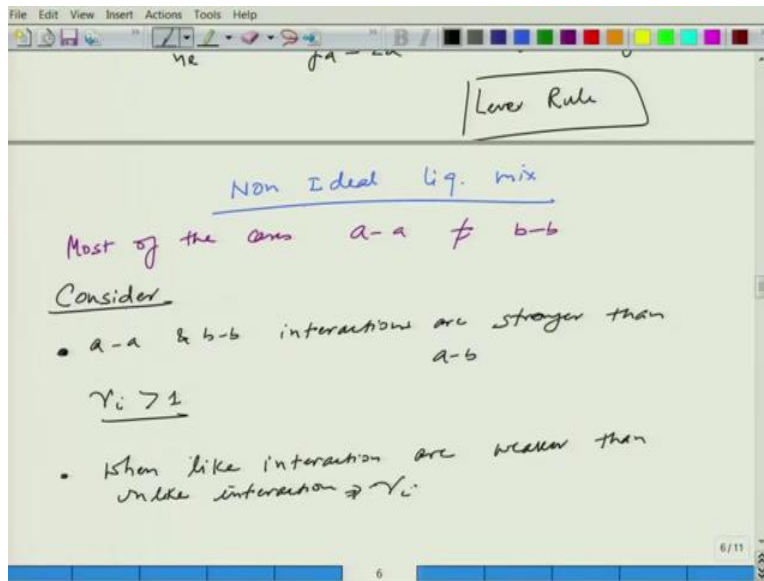 File Edit View Insert Actions Tools Help
Lever Rule
Non Ideal liq. mix
Most of the cases a-a ≠ b-b
Consider
• a-a & b-b interactions are stronger than
a-b
γi > 1
• When like interaction are weaker than
unlike interaction ⇒ γi
6/11
6